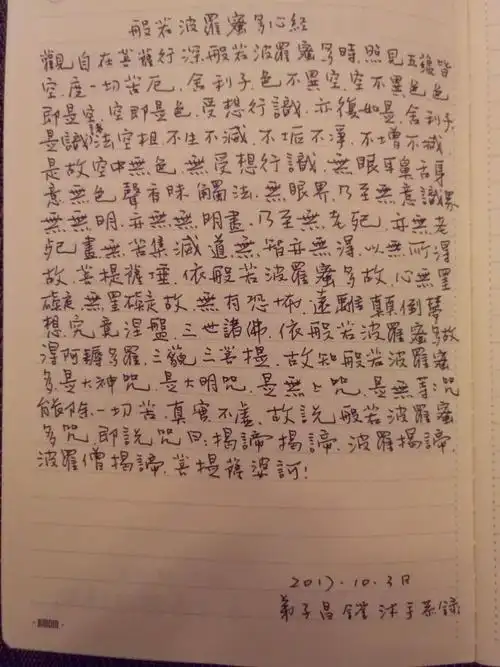 般若波羅蜜多心經
觀自在菩薩行深般若波羅蜜多時.照見五蘊皆
空.度一切苦厄.舍利子.色不異空.空不異色.色
即是空.空即是色.受想行識.亦復如是.舍利子.
是諸法空相.不生不滅.不垢不淨.不增不減.
是故空中無色.無受想行識.無眼耳鼻舌身
意.無色聲香味觸法.無眼界.乃至無意識界.
無無明.亦無無明盡.乃至無老死.亦無老
死盡.無苦集滅道.無智亦無得.以無所得
故.菩提薩埵.依般若波羅蜜多故.心無罣
礙.無罣礙故.無有恐怖.遠離顛倒夢
想.究竟涅盤.三世諸佛.依般若波羅蜜多故
得阿耨多羅.三藐三菩提.故知般若波羅蜜
多.是大神咒.是大明咒.是無上咒.是無等咒
能除一切苦.真實不虛.故說般若波羅蜜
多咒.即說咒曰:揭諦揭諦.波羅揭諦.
波羅僧揭諦.菩提薩婆訶!
2017.10.3日
弟子昌 沐手 錄